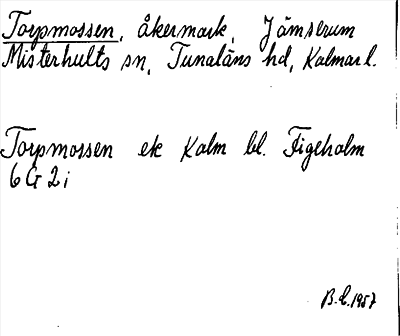 Torpmossen, åkermark, Jämserum
Misterhults sn, Tunaläns hd, Kalmar l.
Torpmossen ek Kalm bl. Figeholm
6 G 2 i
B.L. 1957